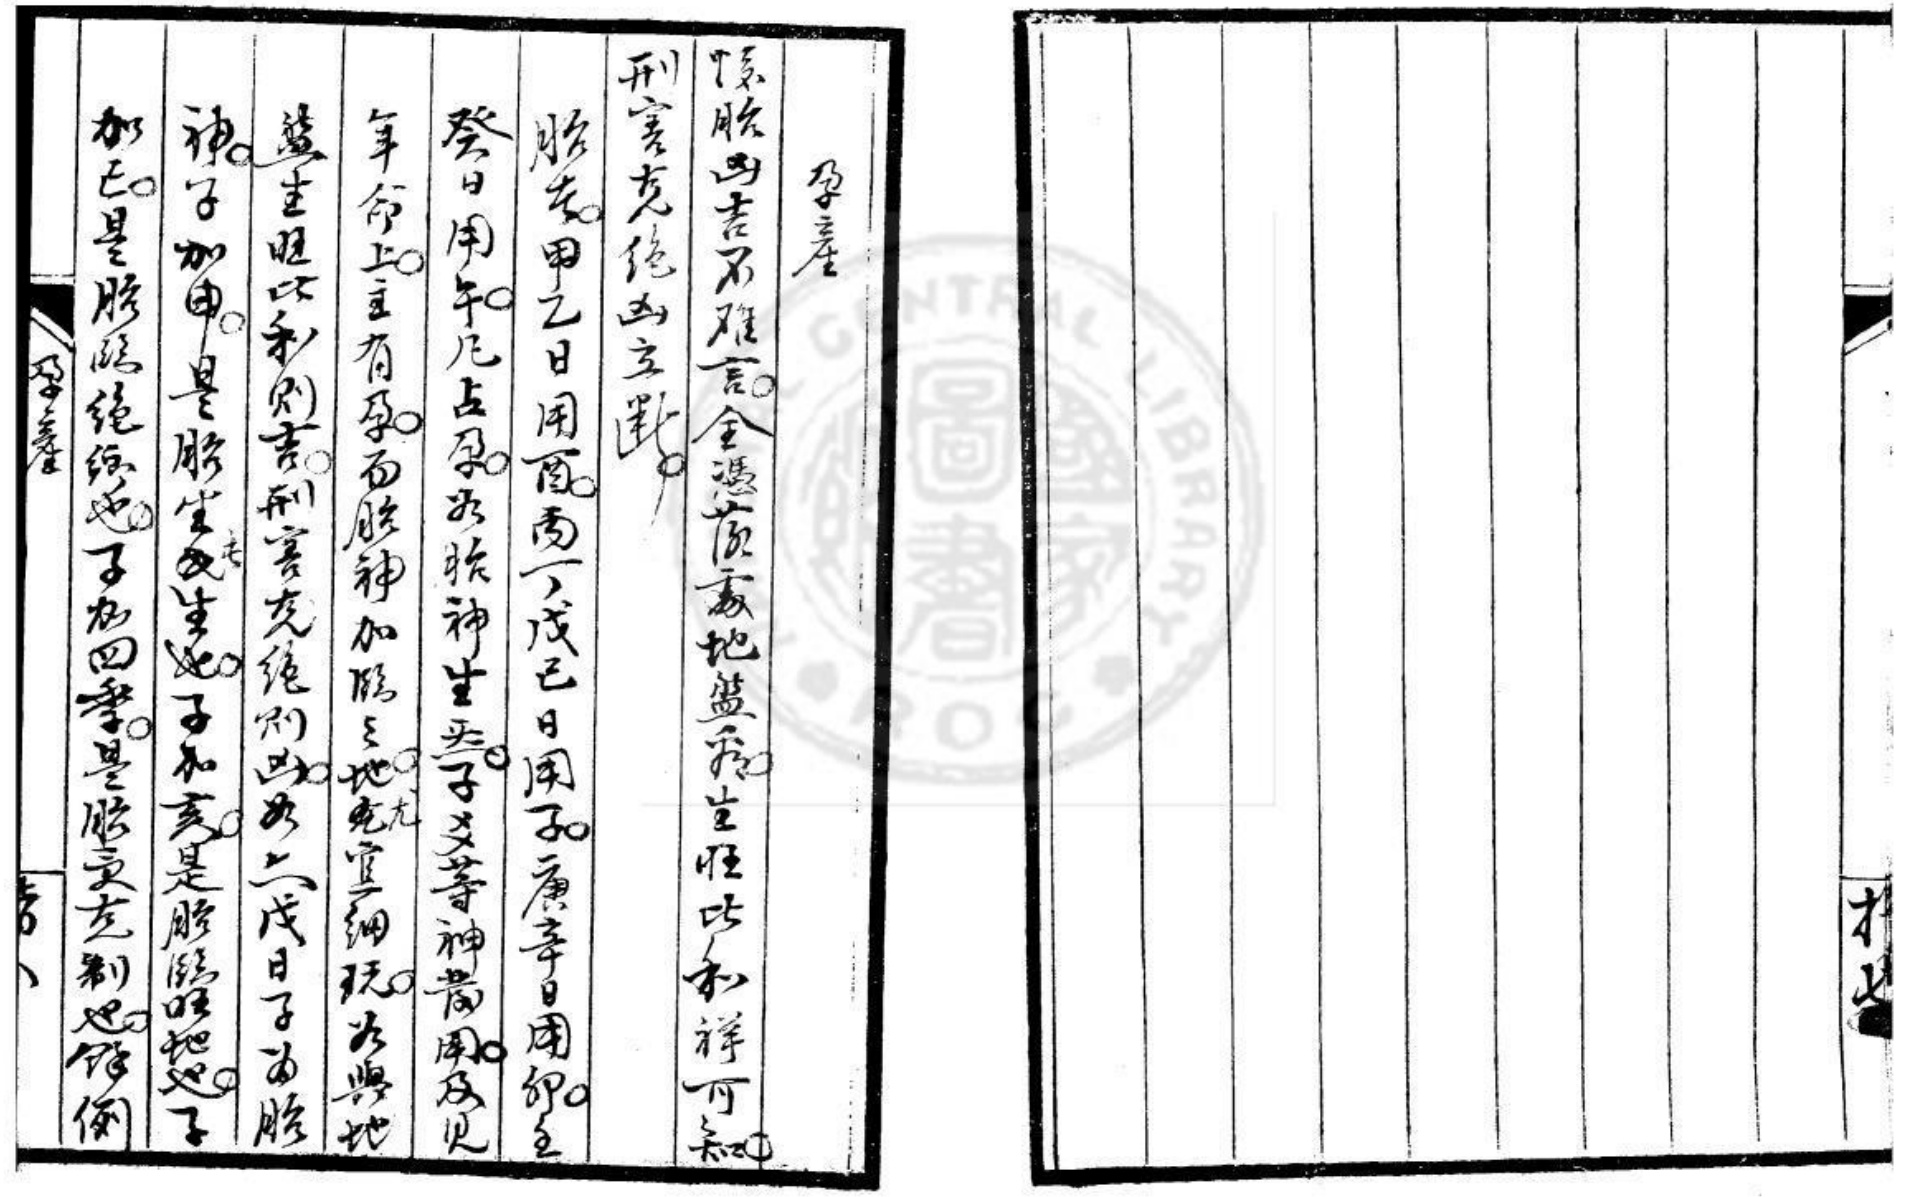 孕產
懷胎凶吉不难言全憑落處地盤看生旺比和祥可知
刑害克絕凶立斷
胎者甲乙日用酉丙丁戊己日用子庚辛日用卯壬
癸日用午凡占孕必胎神生炁子爻等神發用及見
年命上主有孕而胎神加臨之地尤宜細玩必與地
盤生旺比和則吉刑害克絕則凶如六戊日子為胎
神子加申是胎坐長生也子加亥是胎臨旺地也子
加巳是胎臨絕經也子加四季是胎受克制也餘倒
孕產
CENTRAL LIBRARY
ROC
國家圖書館